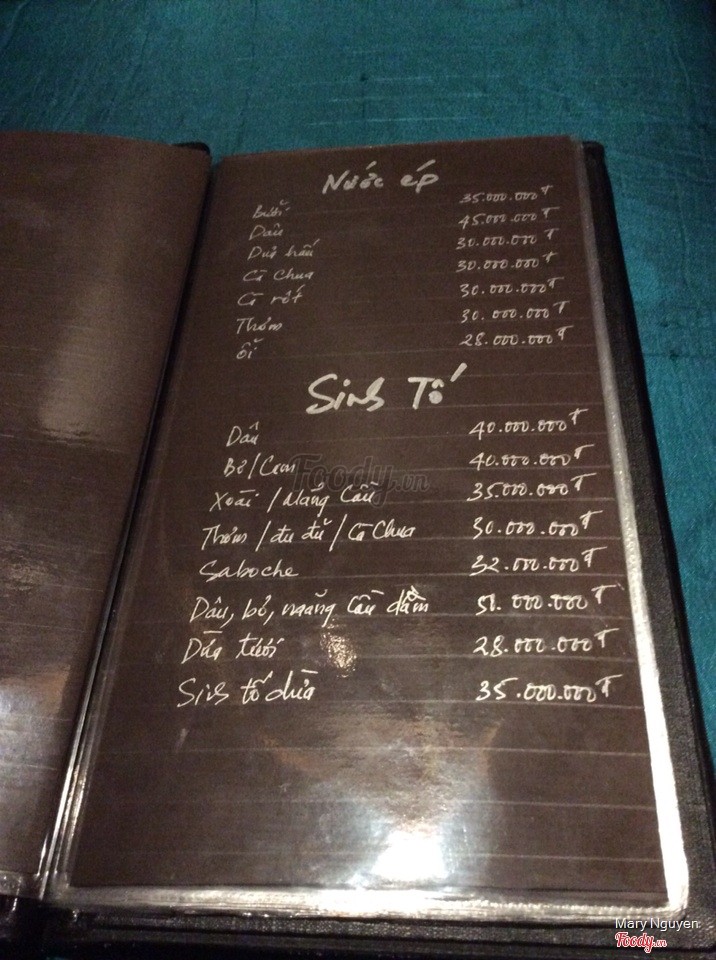 Nước ép
Bưởi 35.000.000đ
Dâu 45.000.000đ
Dưa hấu 30.000.000đ
Cà chua 30.000.000đ
Cà rốt 30.000.000đ
Thơm 30.000.000đ
Ổi 28.000.000đ
Sinh Tố
Dâu 40.000.000đ
Bơ/Cam 40.000.000đ
Xoài/Mãng Cầu 35.000.000đ
Thơm/đu đủ/Cà Chua 30.000.000đ
Saboche 32.000.000đ
Dâu, bơ, mãng Cầu dầm 51.000.000đ
Dừa tươi 28.000.000đ
Sinh tố dừa 35.000.000đ
Foody.vn
Mary Nguyen
Foody.vn